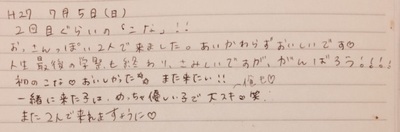 H27 7月5日(日)
2回目ぐらいの「こな」!!
お,さんぽい2人で来ました。あいかわらずおいしいです♡
人生最後の学祭も終わり、さみしいですが、がんばろう!!!!
和のこな♡おいしかった また来たい!! 〜俺も♡
一緒に来たろは、めっちゃ優しいるで大スキ♡笑
また2人で来れますように♡